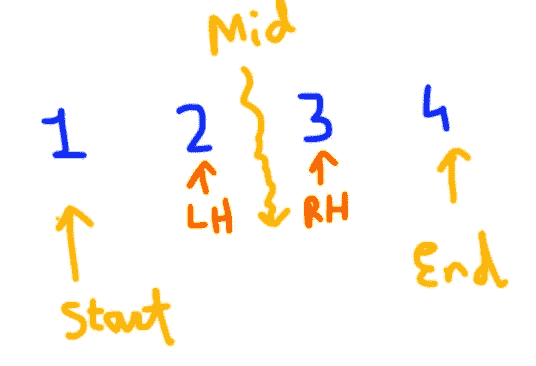 Mid
1 2 3 4
LH RH
Start End